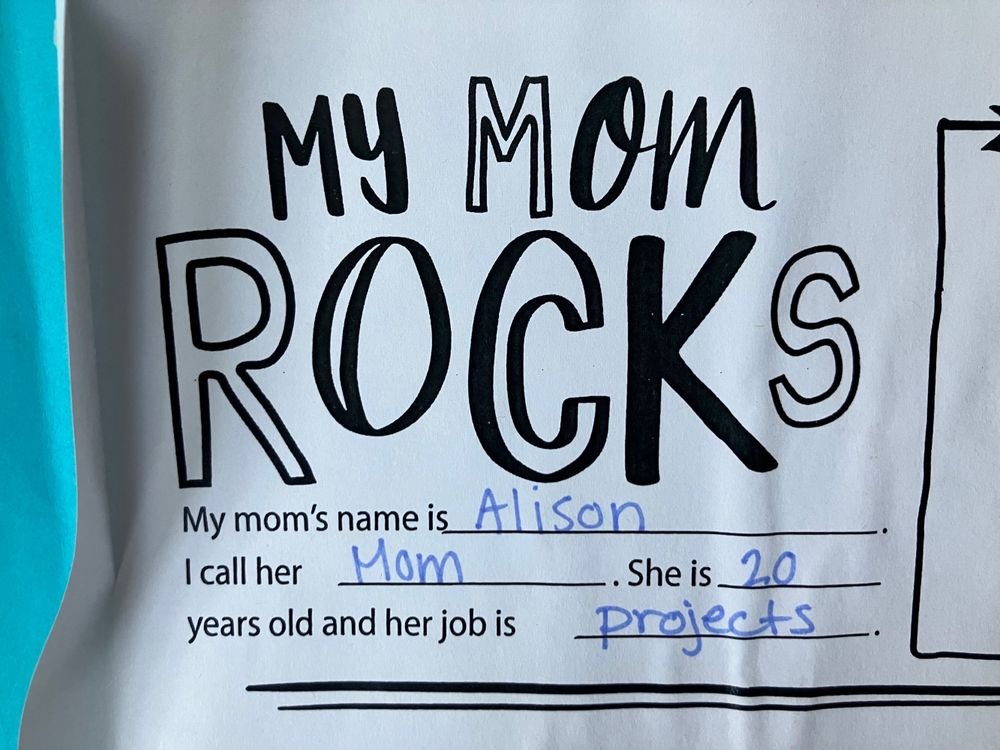 MY MOM
ROCKS
My mom's name is Alison.
I call her Mom. She is 20
years old and her job is projects.